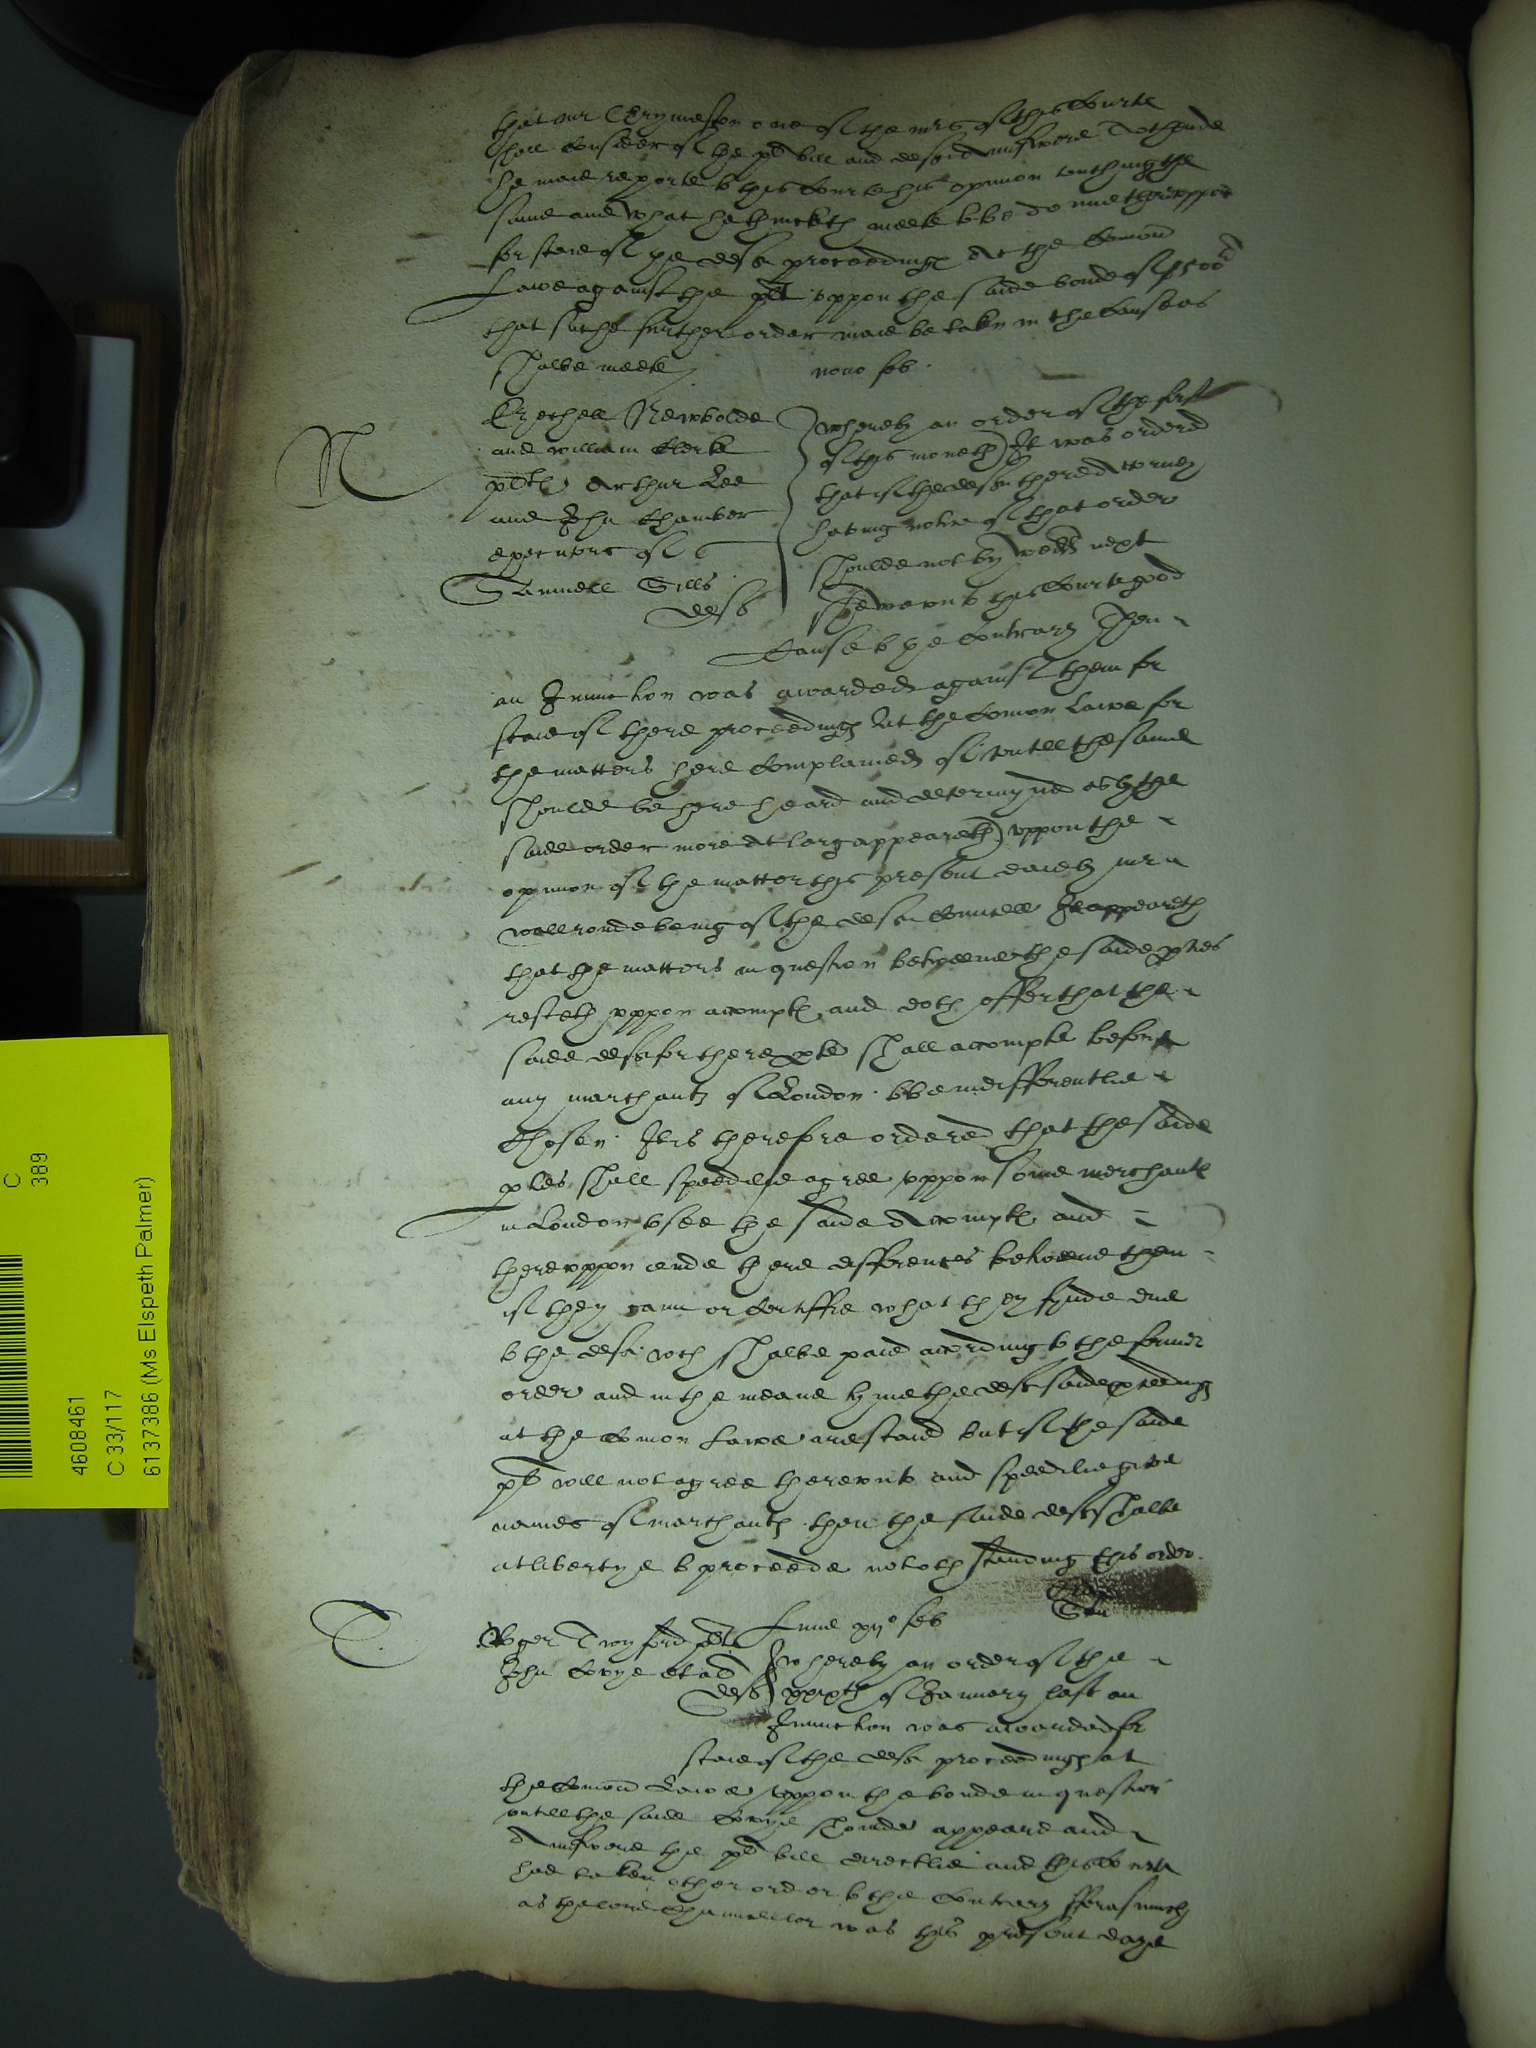 that mr Grymeston one of the mrs of this Courte
shall Consider of the pl bill and def and Answere
he maie reporte to this Courte his opinion touching the
same and what he thincketh meete to be done
for staie of the defts proceedings At the Comon
Lawe against the plt uppon the saide bonde of
that suche further order maie be taken in the Cause as
shalbe meete nono feb
N
Newbolde
and william Clerke
plts Arthur Lee
and John Chamber
executors of
Samuell Sills
defts
whereby an order of the first
of this moneth It was ordered
that if the defts there Attorney
having notice of that order
shoulde not by weds next
shewe unto this Courte good
Cause to the Contrary Then
an Iniunction was awarded against them for
staie of there proceedings At the Comon Lawe for
the matters here Complained of untell the same
shoulde be here heard and determyned as by the
saide order more At larg appeareth uppon the
opinion of the matter this present daie by mr
being of the defts Councell It appeareth
that the matters in question betweene the saide pties
resteth uppon accompts and doth offer that the
saide defts for there pte shall accompte before
any marchants of London to be indifferentlie
Chosen It is therefore ordered that the saide
pties shall speedelie agree uppon some merchants
in London to see the saide Accompts and
thereuppon ende there differences betweene them
if they cann or Certiffie what they fynde due
to the defts wch shalbe paid according to the former
order and in the meane tyme the defts saide proceedings
at the Comon Lawe are staid but if the saide
plt will not agree thereunto and speedelie give
names of marchants then the saide defts shalbe
at libertye to proceede notwth standing this order
T
Roger Twyford plt
John Cowye et al
defts
Lune xijo feb
whereby an order of the
xxxth of January last an
Iniunction was awarded for
staie of the defts proceedings at
the Comon Lawe uppon the bonde in question
untell the saide Cowye shoulde appeare and
Answere the plt bill directlie and this Courte
had taken other order to the Contrary fforasmuch
as the lord Chauncellor was this present daye
C
389
4608461
C 33/117
6137386 (Ms Elspeth Palmer)